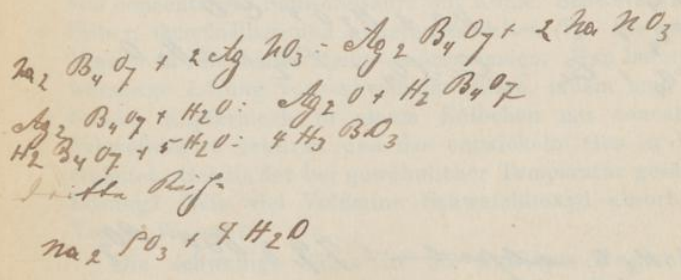 Na2 B4O7 + 2 Ag NO3 = Ag2 B4O7 + 2 Na NO3
Ag2 B4O7 + H2O = Ag2 O + H2 B4O7
H2 B4O7 + 5 H2O = 4 H3 BO3
Dritte Reihe
Na2 SO3 + 7 H2O